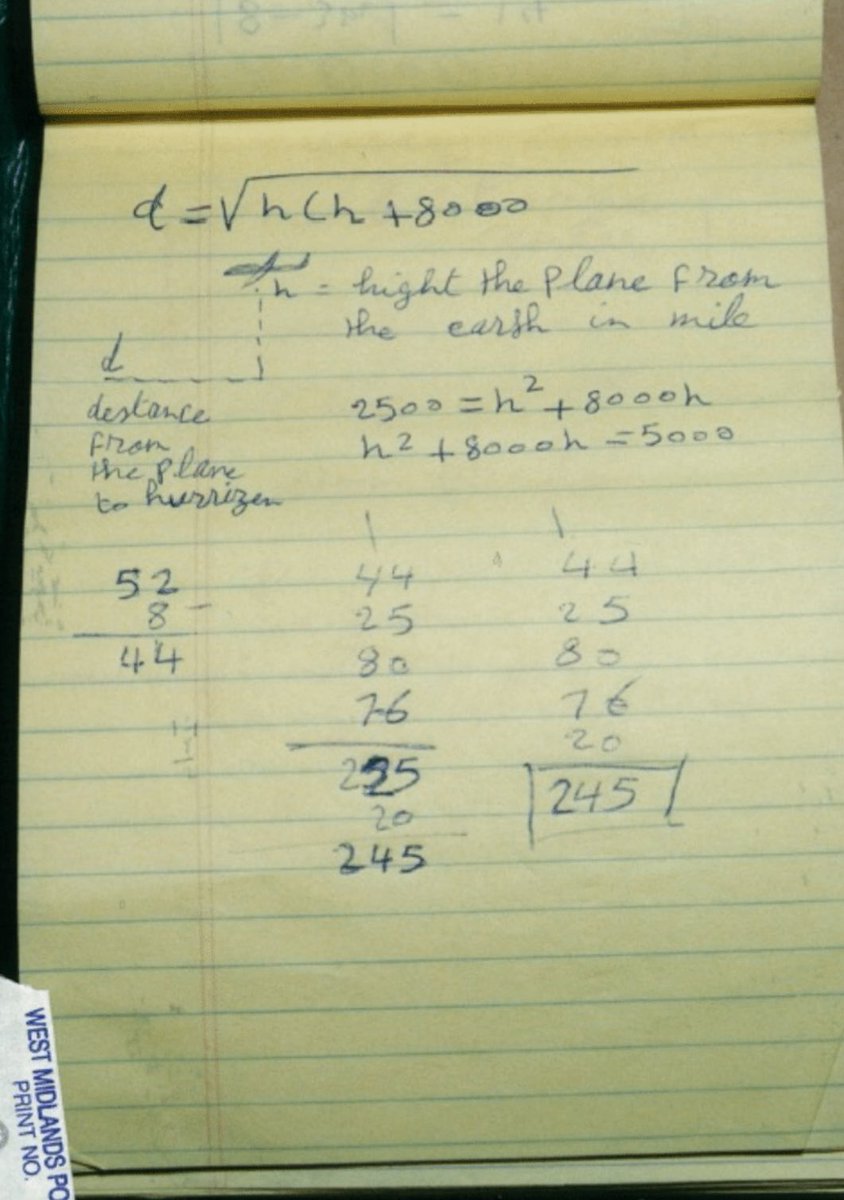 d = √h(h + 8000
h = hight the plane from
the earth in mile
d
destance
from
the plane
to hurrizen
2500 = h² + 8000h
h² + 8000h = 5000
52
8 -
44
44
25
80
76
225
20
245
44
25
80
76
20
245
WEST MIDLANDS PO
PRINT NO.